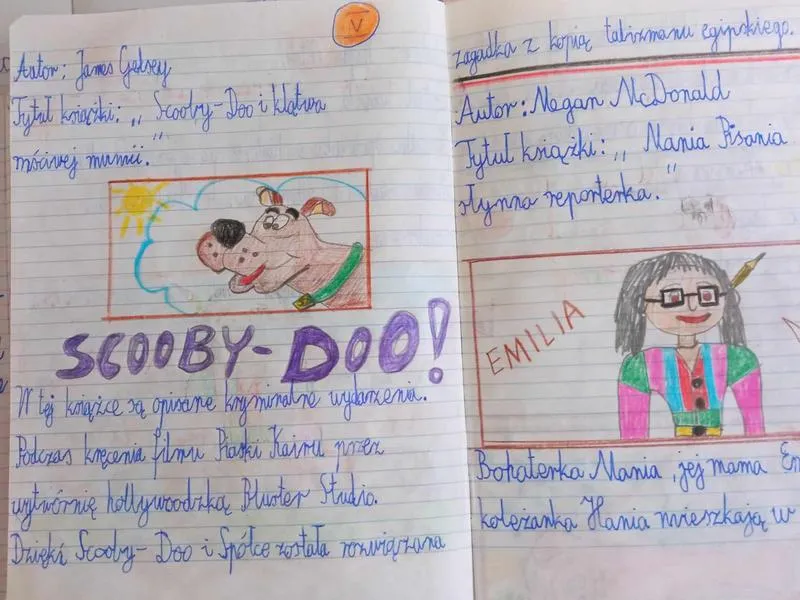 V
Autor: James Gelsey
Tytuł książki: „Scooby-Doo i klątwa
mściwej mumii."
SCOOBY-DOO!
W tej książce są opisane kryminalne wydarzenia.
Podczas kręcenia filmu Piaski Kairu przez
wytwórnię hollywoodzką Bluster Studio.
Dzięki Scooby-Doo i Spółce została rozwiązana
zagadka z kopią talizmanu egipskiego.
Autor: Megan McDonald
Tytuł książki: „Mania Pisania
słynna reporterka."
EMILIA
Bohaterka Mania, jej mama Em
koleżanka Hania mieszkają w